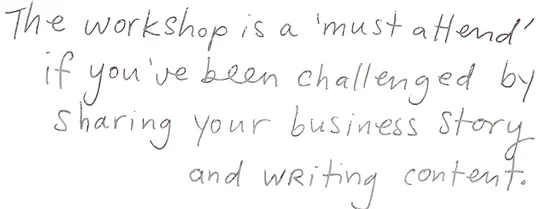 The workshop is a 'must attend'
if you've been challenged by
sharing your business story
and writing content.